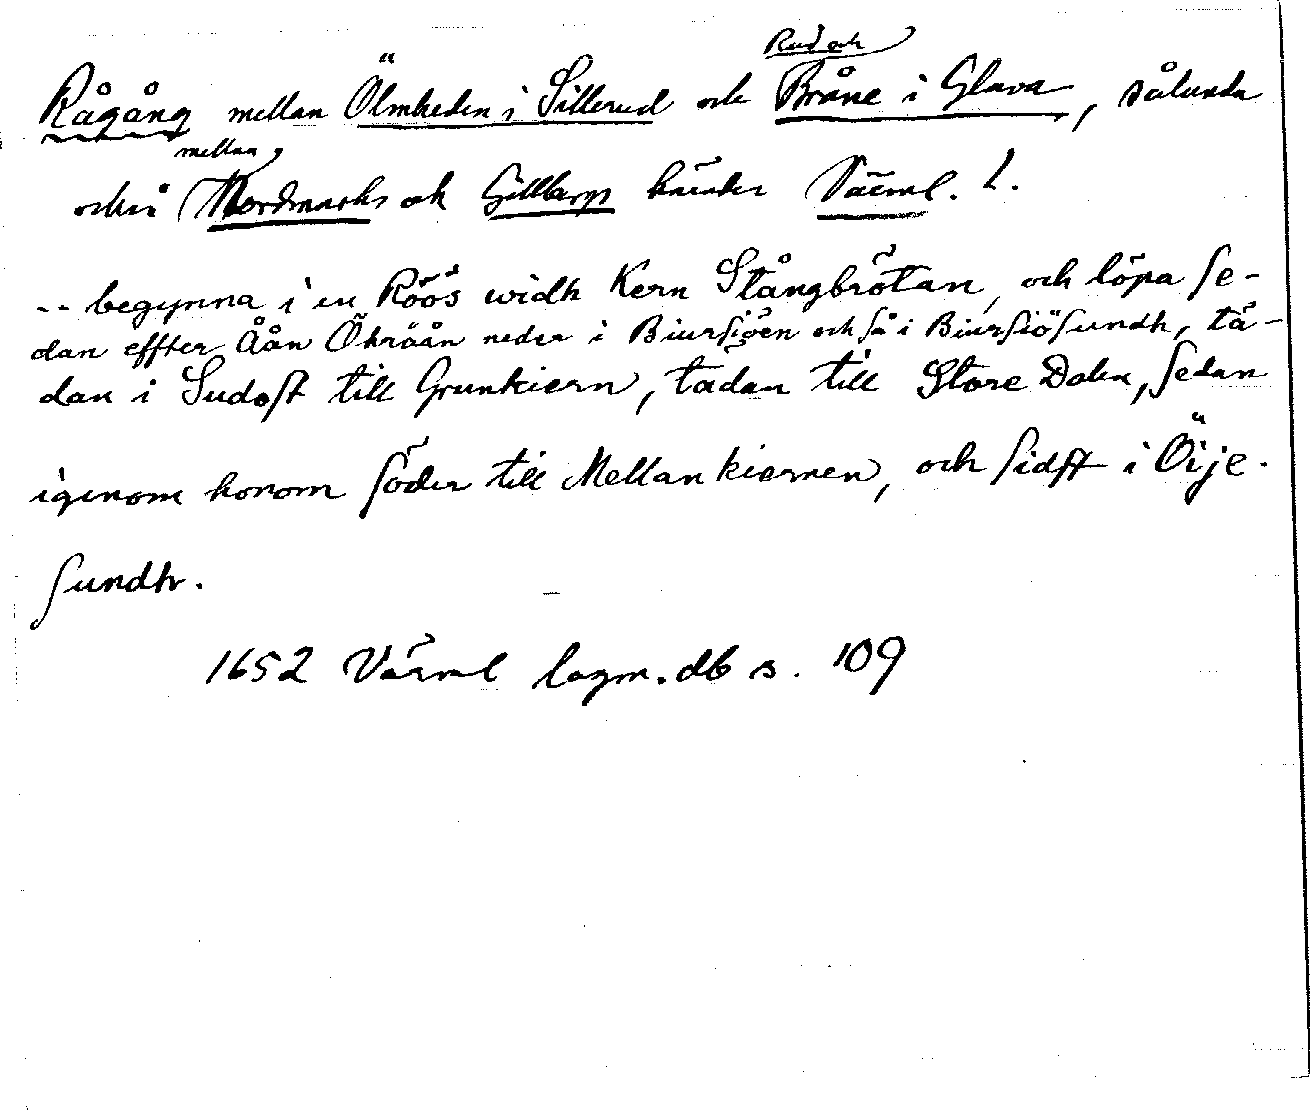 Rud och
Rågång mellan Ölmheden i Sillerud och Bråne i Glava, sålunda
mellan
också Nordmarks och Gillbergs härader Värml. L.
-- begynna i en Röös widh Kern Stångbrötan, och löpa se-
dan effter Åån Ökråån neder i Biursjöen och så i Biursiösundh, tä-
dan i Sudost till Grunkiern, tädan till Store Dalen, sedan
igenom honom söder till Mellankiernen, och sidst i Öije-
sundh.
1652 Värml lagm. db s. 109